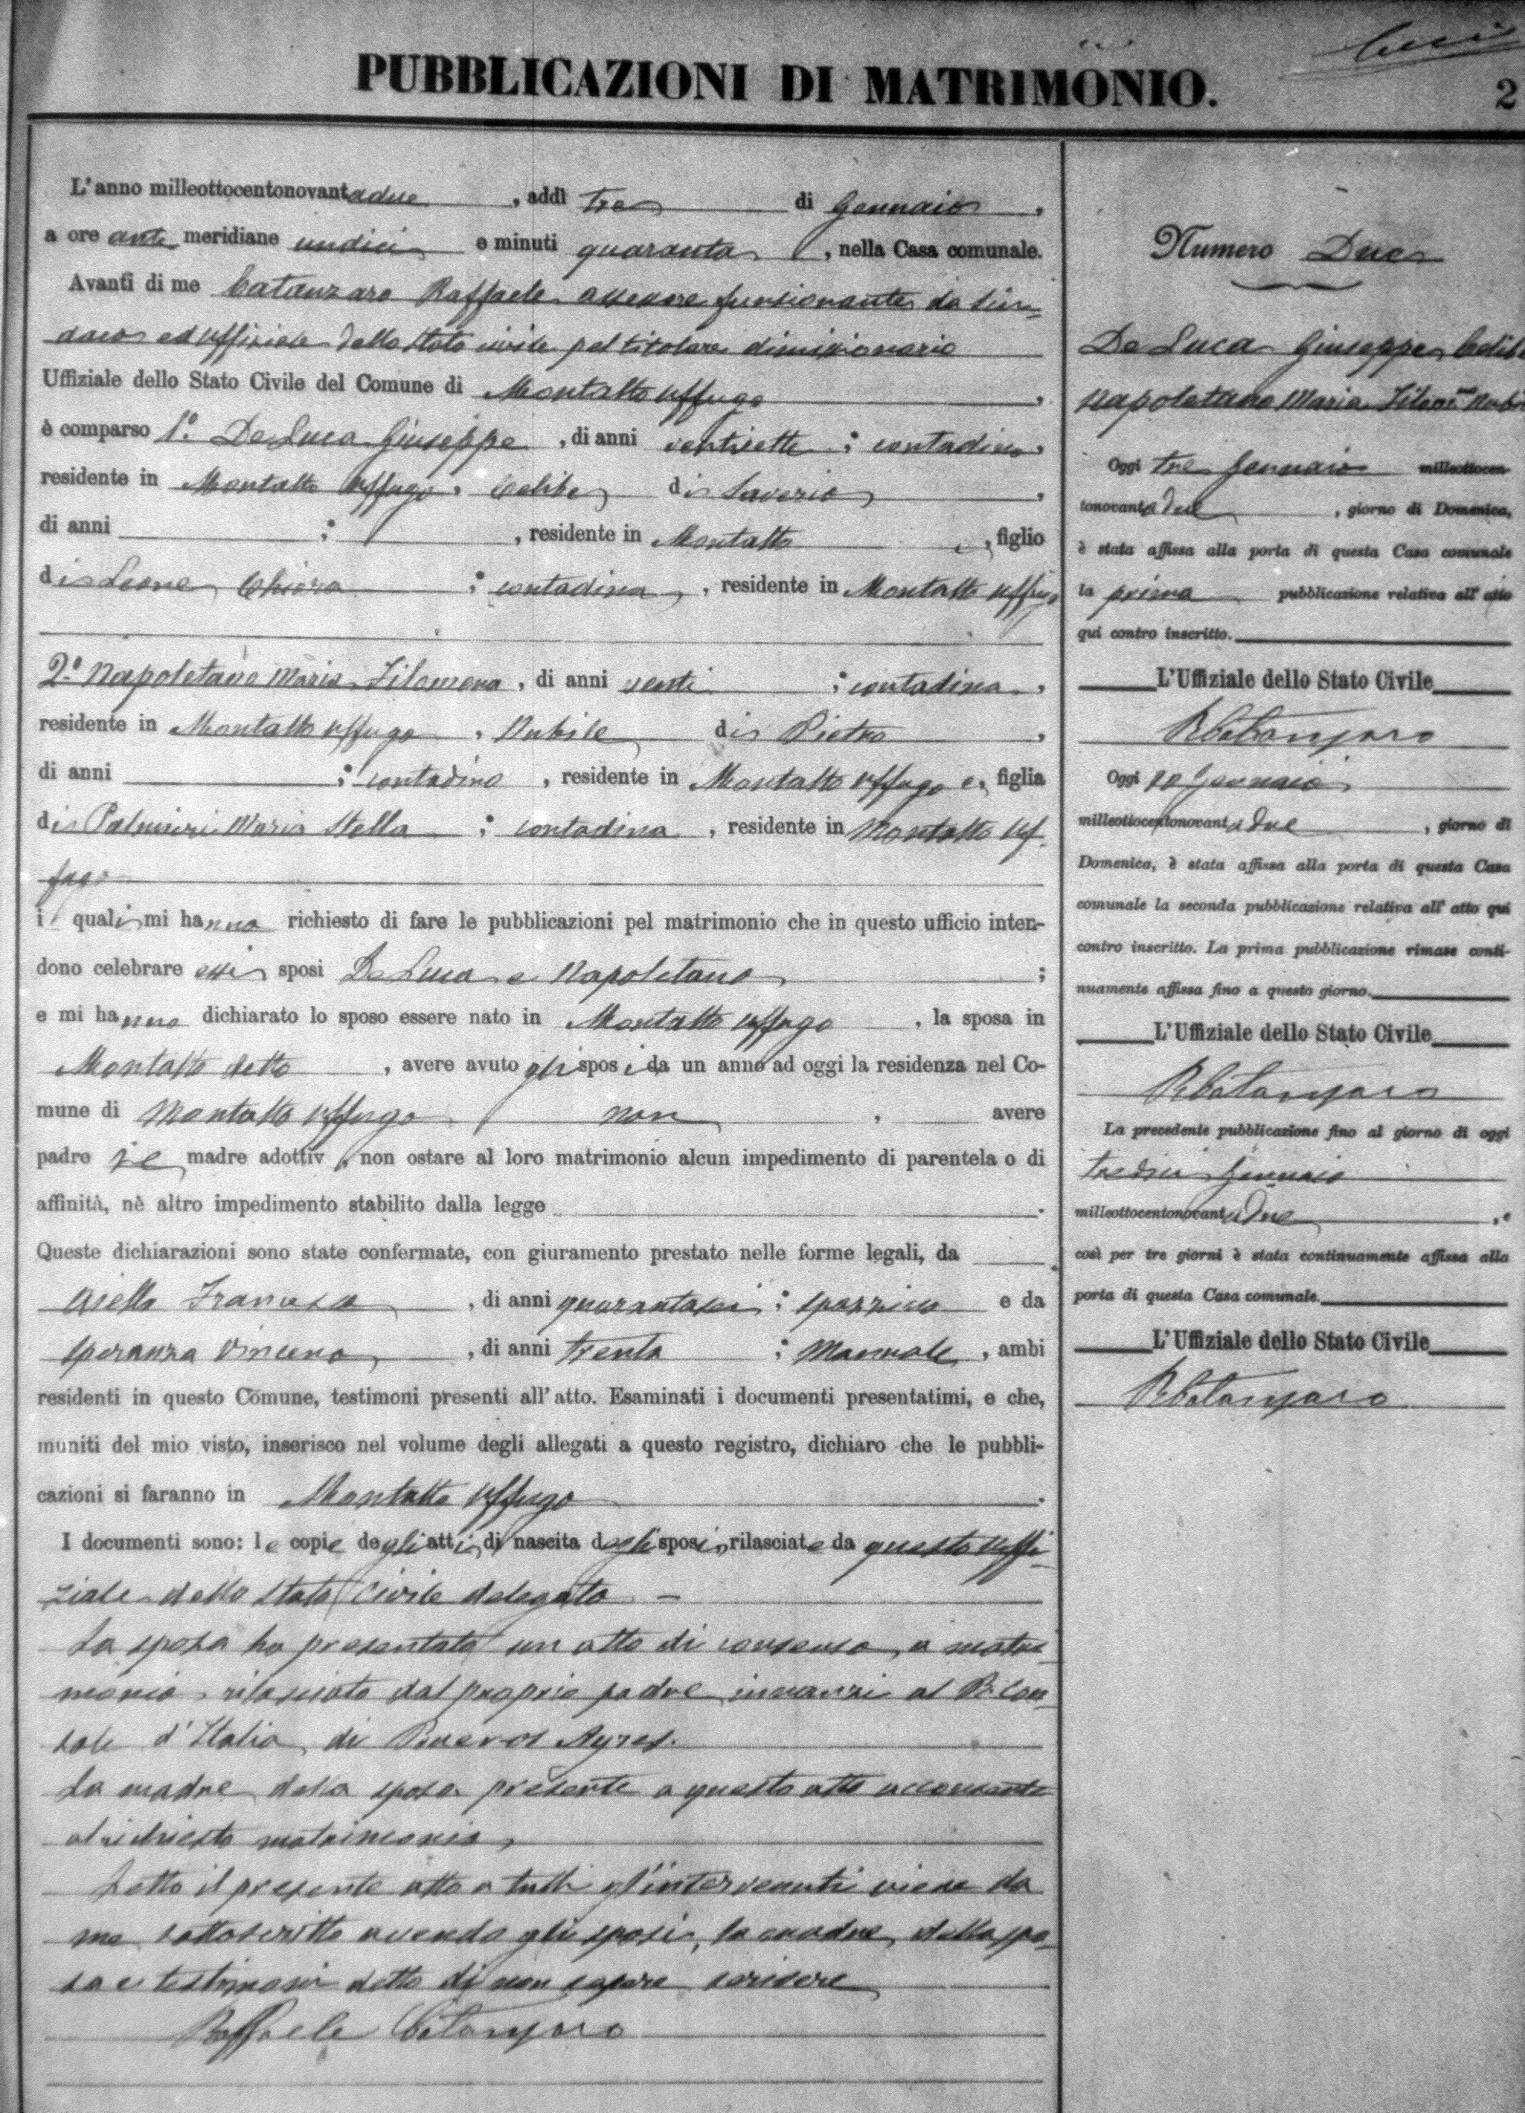 PUBBLICAZIONI DI MATRIMONIO.
2
L'anno milleottocentonovantadue, addì tre di Gennaio,
a ore anti meridiane undici e minuti quaranta, nella Casa comunale.
Avanti di me Catanzaro Raffaele assessore funzionante da Sin-
daco ed uffiziale dello stato civile pel titolare dimissionario
Uffiziale dello Stato Civile del Comune di Montalto Uffugo,
è comparso 1.º De Luca Giuseppe, di anni ventisette; contadino,
residente in Montalto Uffugo, Celibe, di Saverio,
di anni ; , residente in Montalto e, figlio
di Leone Chiara ; contadina, residente in Montalto Uffugo
2.º Napoletano Maria Filomena, di anni venti ; contadina,
residente in Montalto Uffugo, Nubile di Pietro,
di anni ; contadino, residente in Montalto Uffugo e, figlia
di Palmieri Maria Stella ; contadina, residente in Montalto Uf-
fugo
i quali mi hanno richiesto di fare le pubblicazioni pel matrimonio che in questo ufficio inten-
dono celebrare essi sposi De Luca e Napoletano ;
e mi hanno dichiarato lo sposo essere nato in Montalto Uffugo, la sposa in
Montalto detto, avere avuto gli sposi da un anno ad oggi la residenza nel Co-
mune di Montalto Uffugo non, avere
padre nè madre adottiv , non ostare al loro matrimonio alcun impedimento di parentela o di
affinità, nè altro impedimento stabilito dalla legge .
Queste dichiarazioni sono state confermate, con giuramento prestato nelle forme legali, da
Aiello Francesco, di anni quarantasei ; spazzino e da
Speranza Vincenzo, di anni trenta ; Manuale, ambi
residenti in questo Comune, testimoni presenti all'atto. Esaminati i documenti presentatimi, e che,
muniti del mio visto, inserisco nel volume degli allegati a questo registro, dichiaro che le pubbli-
cazioni si faranno in Montalto Uffugo .
I documenti sono: le copie degli atti di nascita degli sposi rilasciate da questo Uffi-
ziale dello Stato Civile delegato —
La sposa ha presentato un atto di consenso a matri-
monio rilasciato dal proprio padre innanzi al R. Con-
sole d'Italia di Buenos Ayres.
La madre della sposa presente a questo atto acconsente
al richiesto matrimonio,
Letto il presente atto a tutti gl'intervenuti viene da
me sottoscritto avendo gli sposi, la madre della spo-
sa e testimoni detto di non sapere scrivere
Raffaele Catanzaro
Numero Due
De Luca Giuseppe Celibe
Napoletano Maria Filomª Nubile
Oggi tre Gennaio milleottocen-
tonovantadue, giorno di Domenica,
è stata affissa alla porta di questa Casa comunale
la prima pubblicazione relativa all'atto
qui contro inscritto.
L'Uffiziale dello Stato Civile
R Catanzaro
Oggi 10 Gennaio
milleottocentonovantadue, giorno di
Domenica, è stata affissa alla porta di questa Casa
comunale la seconda pubblicazione relativa all'atto qui
contro inscritto. La prima pubblicazione rimase conti-
nuamente affissa fino a questo giorno.
L'Uffiziale dello Stato Civile
R Catanzaro
La precedente pubblicazione fino al giorno di oggi
tredici Gennaio
milleottocentonovantadue, e
così per tre giorni è stata continuamente affissa alla
porta di questa Casa comunale.
L'Uffiziale dello Stato Civile
R Catanzaro